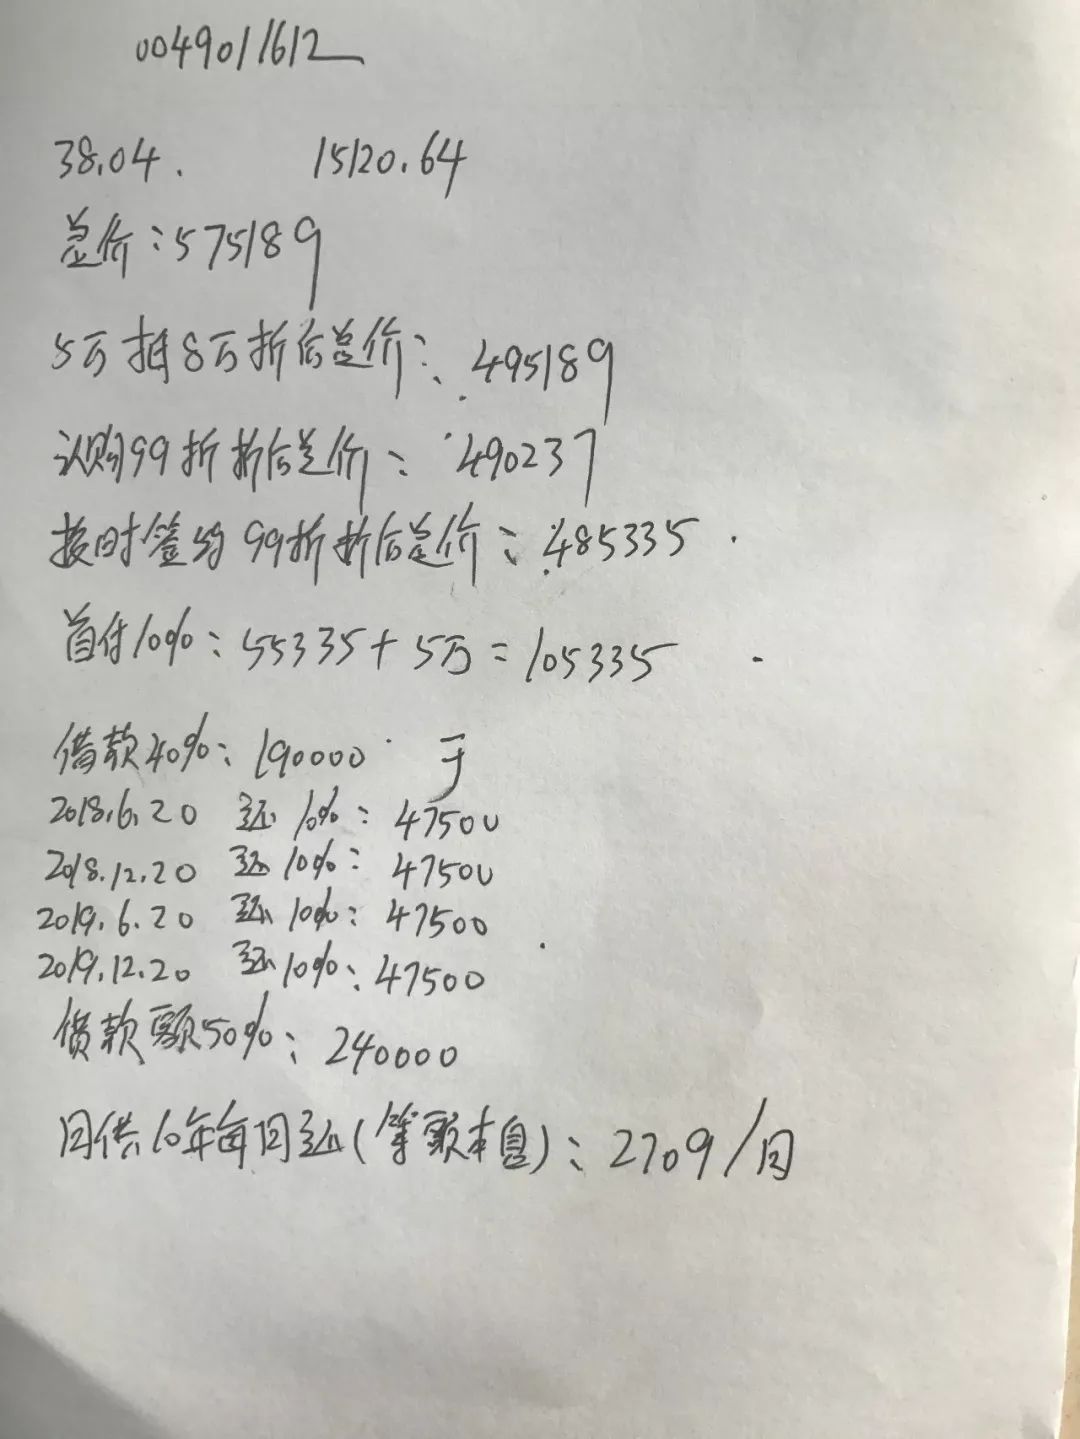 0049011612
38.04. 15120.64
总价:575189
5万抵8万折后总价:495189
认购99折折后总价:490237
按时签约99折折后总价:485335
首付10%:55335+5万=105335
借款40%:190000 于
2018.6.20 还10%:47500
2018.12.20 还10%:47500
2019.6.20 还10%:47500
2019.12.20 还10%:47500
借款额50%:240000
月供10年每月还(等额本息):2709/月